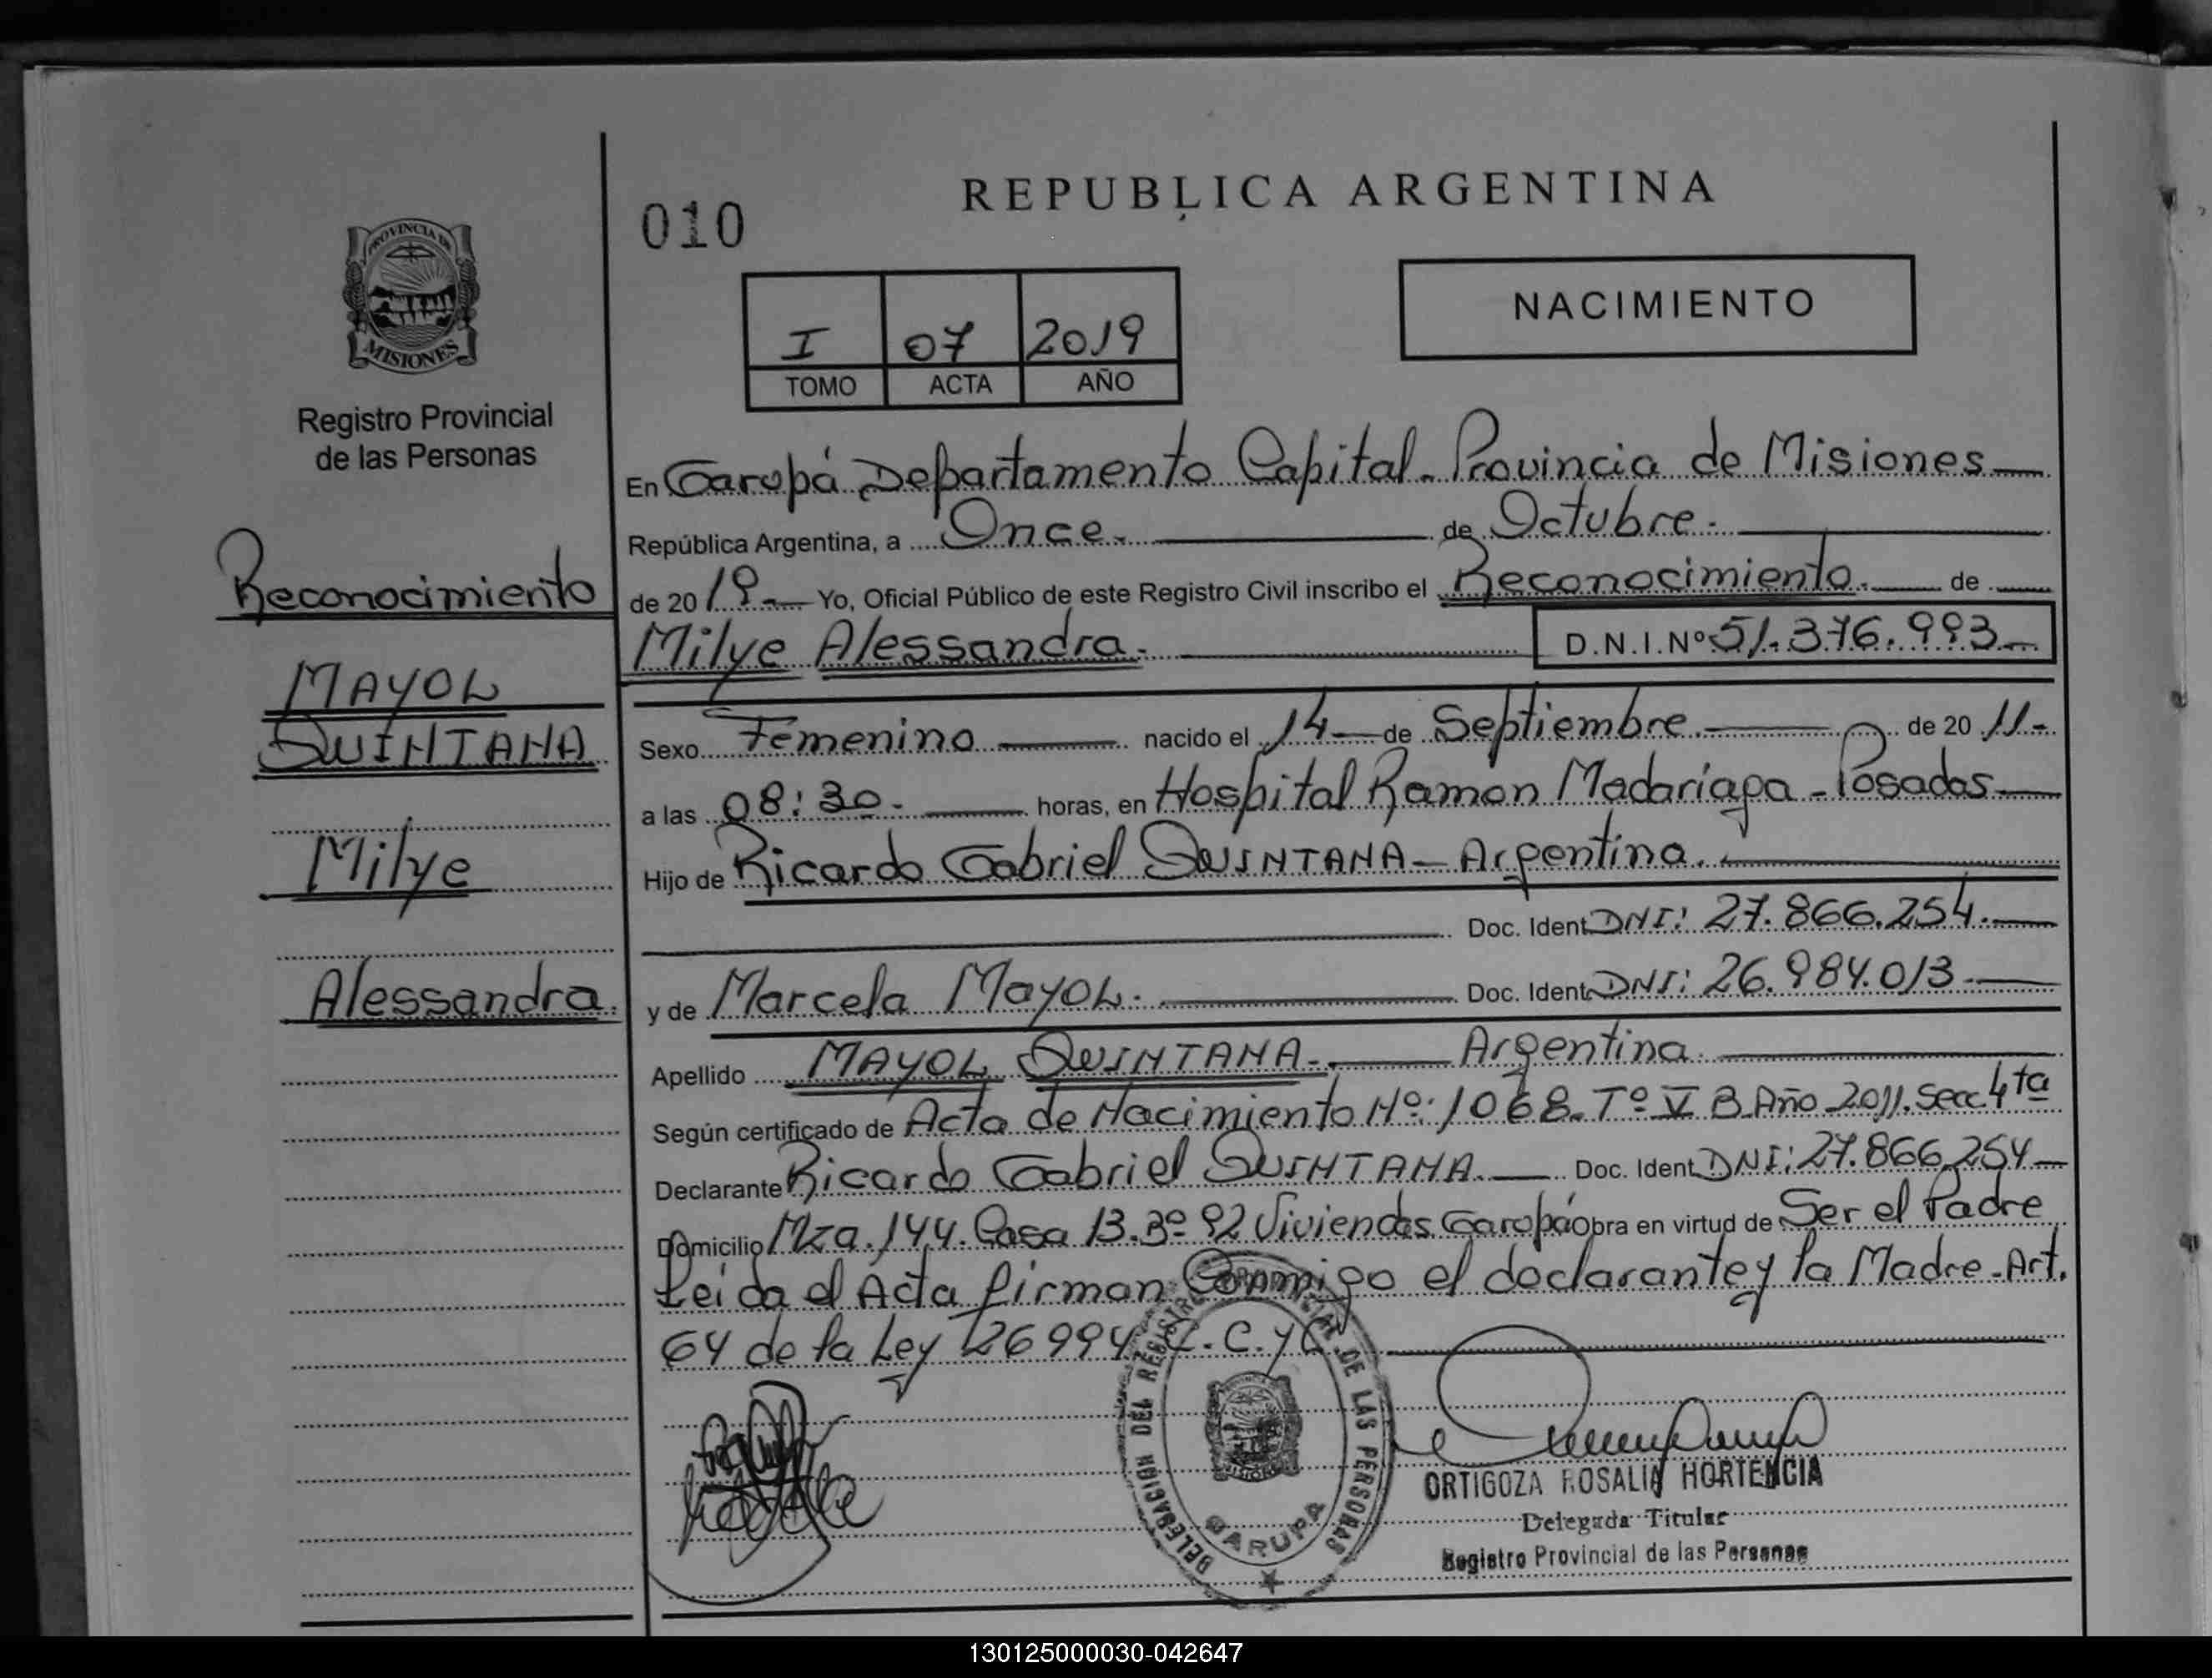 REPUBLICA ARGENTINA
010
NACIMIENTO
I 07 2019
TOMO ACTA AÑO
PROVINCIA DE
MISIONES
Registro Provincial
de las Personas
Reconocimiento
MAYOL
QUINTANA
Milye
Alessandra.
En Garupá Departamento Capital. Provincia de Misiones
República Argentina, a Once. de Octubre.
de 2019. Yo, Oficial Público de este Registro Civil inscribo el Reconocimiento. de
Milye Alessandra. D.N.I.Nº 51.376.993
Sexo Femenino nacido el 14 de Septiembre. de 20 11.
a las 08:30. horas, en Hospital Ramon Madariaga - Posadas
Hijo de Ricardo Gabriel QUINTANA - Argentina.
Doc. Ident DNI: 27.866.254.
y de Marcela MAYOL. Doc. Ident. DNI: 26.984.013
Apellido MAYOL QUINTANA. Argentina.
Según certificado de Acta de Nacimiento Nº: 1068. Tº V B Año 2011. Secc. 4ta
Declarante Ricardo Gabriel QUINTANA. Doc. Ident. DNI: 27.866.254
Domicilio Mza. 144. Casa 13. Bº 92 Viviendas Garupá obra en virtud de Ser el Padre
Leida el Acta firman Conmigo el declarante y la Madre. Art.
64 de la Ley 26994 C.C.yC.
DELEGACION DEL REGISTRO PROVINCIAL DE LAS PERSONAS
GARUPA
ORTIGOZA ROSALIA HORTENCIA
Delegada Titular
Registro Provincial de las Personas
130125000030-042647